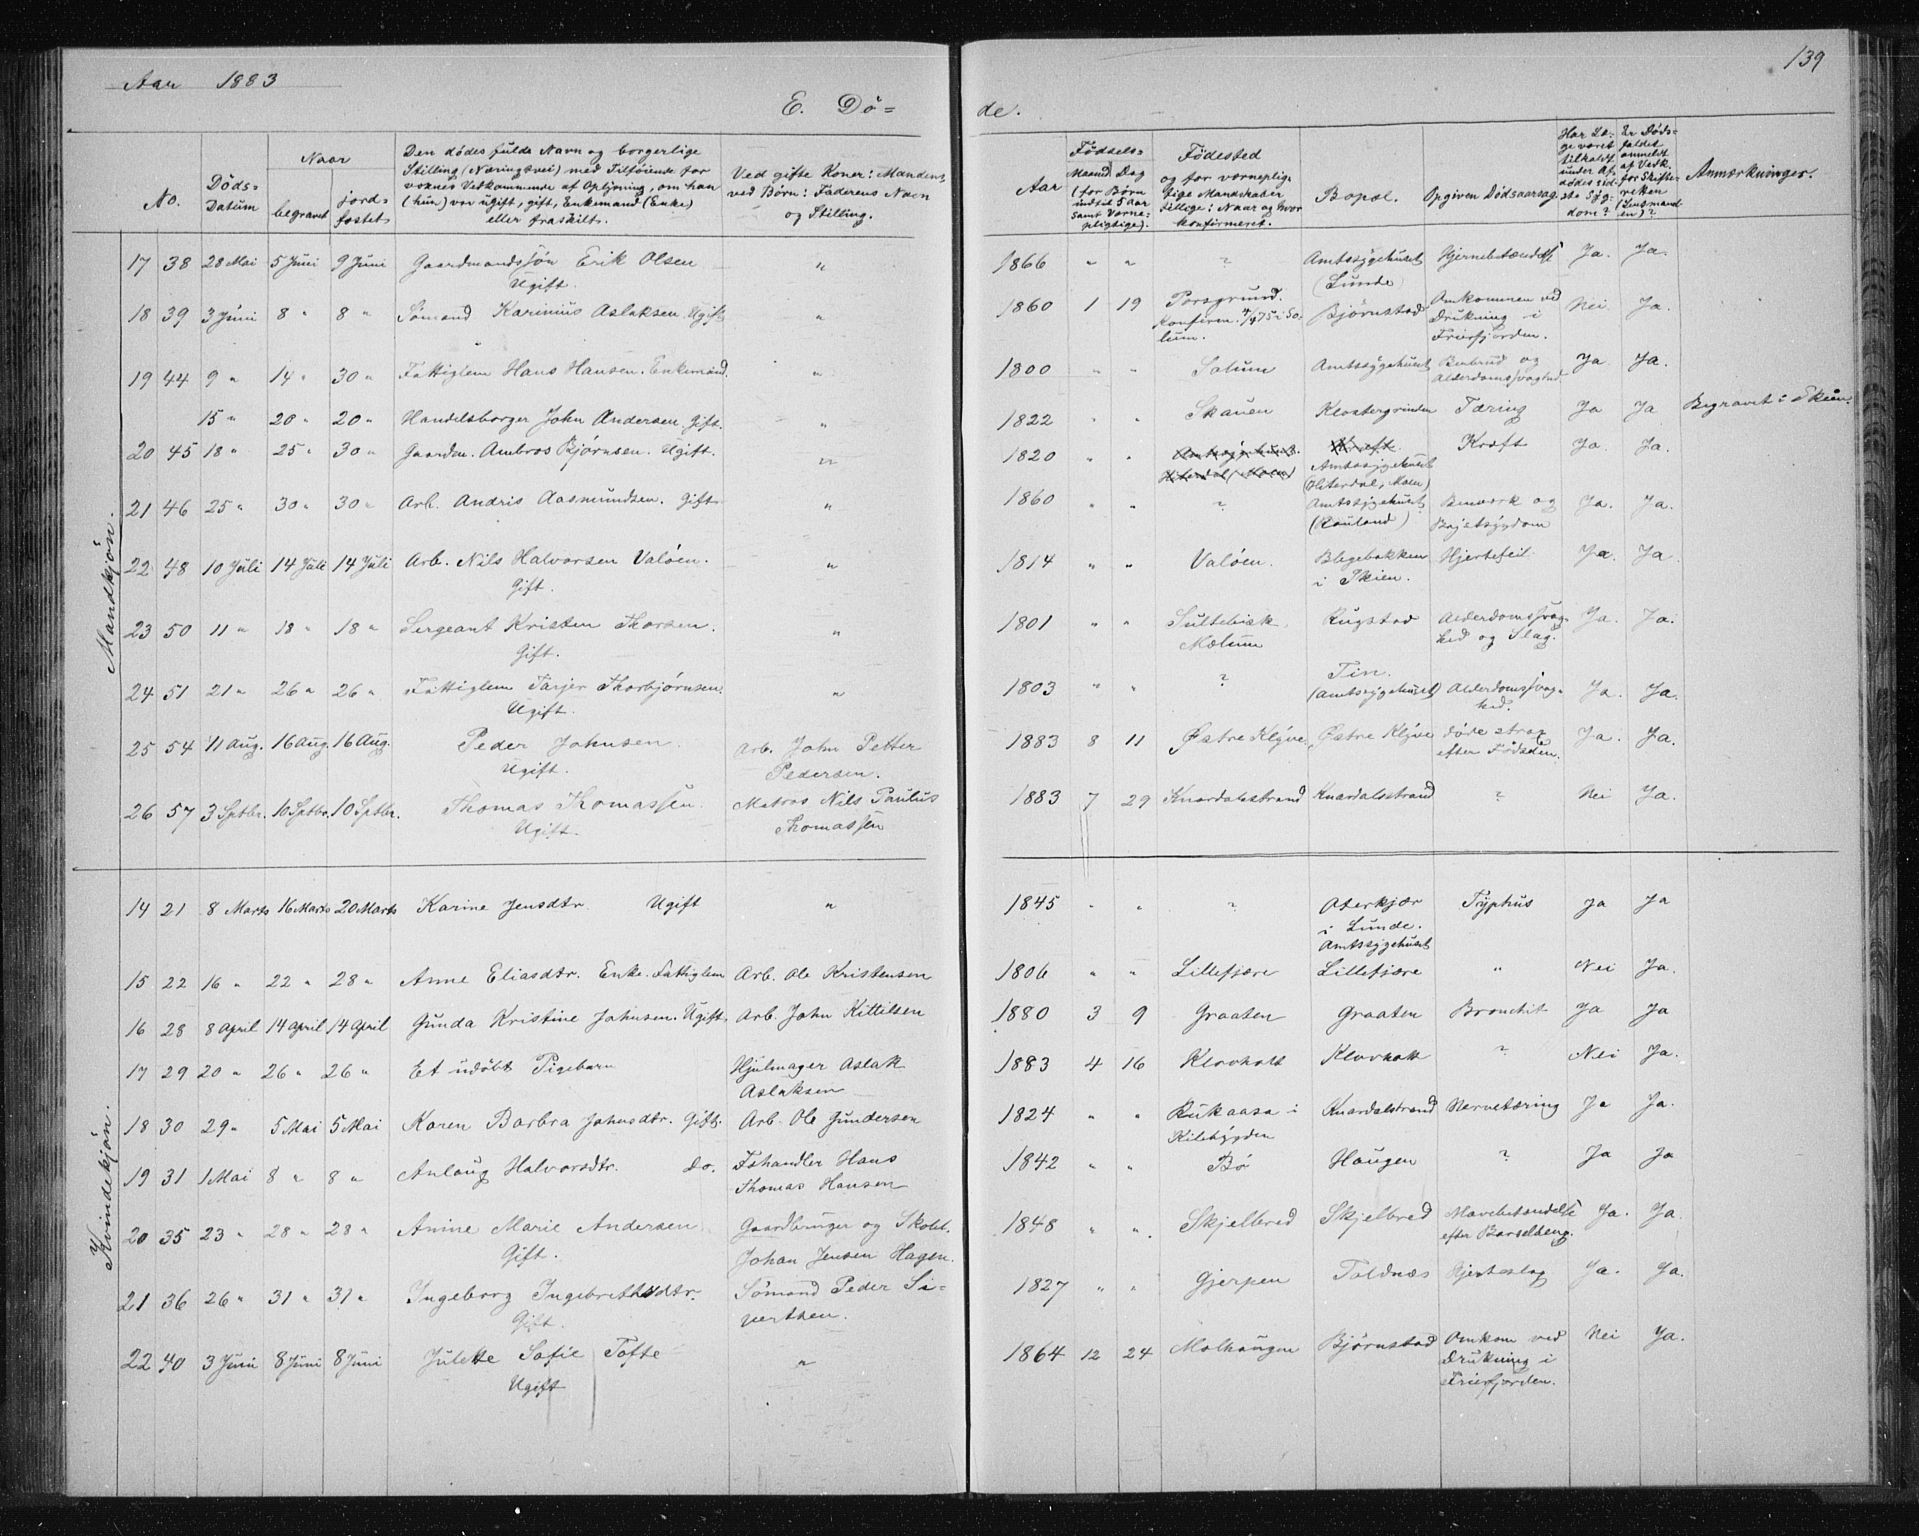 Aar 1883
139
E. Dö=
de.
No.
Döds-Datum
Naar
begravet
jord-fæstet
Den dødes fulde Navn og borgerlige
Stilling (Næringsvei) med Tilføiende for
voxnes Vedkommende af Oplysning, om han
(hun) var ugift, gift, Enkemand (Enke)
eller fraskilt.
Ved gifte Koner: Mandens,
ved Børn: Faderens Navn
og Stilling.
Aar
Fødsels-
Maaned Dag
(for Børn
indtil 5 Aar
samt Værne-
pligtige).
Födested
og for værneplig-
tige Mandskaber
tillige: Naar og hvor
konfirmeret.
Bopæl.
Opgiven Dödsaarsag.
Har Læ-
ge været
tilkaldt
under Af-
dødes sid-
ste Syg-
dom?
Er Døds-
faldet
anmeldt
af Vedk.
for Skifte-
retten
(Lensmand-
en)?
Anmærkninger.
Mandskjön.
17 38 28 Mai 5 Juni 9 Juni Gaardmandssön Erik Olsen " 1866 " " ? Amtssygehuset Hjernebetændelse Ja. Ja.
Ugift. (Lunde)
18 39 3 Juni 8 " 8 " Sömand Karinius Aslaksen. Ugift " 1860 1 19 Porsgrund. Bjørnstad Omkommen ved Nei Ja.
Konfirm. 4/4 75 i So- Drukning i
lum. Frierfjorden.
19 44 9 " 14 " 30 " Fattiglem Hans Hansen. Enkemand. " 1800 " " Solum Amtssygehuset Benbrud og Ja Ja.
Alderdomssvaghed
15 " 20 " 20 " Handelsborger John Andersen. Gift. " 1822 " " Skauen Klostergrinden Tæring Ja Ja Begravet i Skien.
20 45 18 " 25 " 30 " Gaardm. Ambros Bjørnsen. Ugift. " 1820 " " Amtssygehuset Kræft Ja. Ja.
(Hiterdal, Moen)
21 46 25 " 30 " 30 " Arb. Andris Aasmundsen. Gift " 1860 " " ? Amtssygehuset Benværk og Ja. Ja.
(Rauland) Brystsygdom
22 48 10 Juli 14 Juli 14 Juli Arb. Nils Halvorsen Valöen. " 1814 " " Valöen. Blegebakken Hjertefeil Ja. Ja.
Gift. i Skien.
23 50 11 " 18 " 18 " Sergeant Kristen Thorsen. " 1801 " " Rugstad Alderdomssvag- Ja. Ja.
Gift. Mælum hed og Slag.
24 51 21 " 26 " 26 " Fattiglem Tarjer Thorbjørnsen. " 1803 " " ? Tin. Alderdomssvag- Ja. Ja.
Ugift. (Amtssygehuset) hed.
25 54 11 Aug. 16 Aug. 16 Aug. Peder Johnsen. Arb. John Petter 1883 8 11 Østre Klyve. Østre Klyve døde strax Ja. Ja.
Ugift. Pedersen. efter Fødselen.
26 57 3 Sptbr. 10 Sptbr. 10 Sptbr. Thomas Thomassen. Matros Nils Paulus 1883 7 29 Knardalsstrand Knardalsstrand ? Nei Ja.
Ugift. Thomassen
Kvindekjön.
14 21 8 Marts 16 Marts 20 Marts Karine Jensdtr. Ugift " 1845 " " ? Aterkjær Typhus Ja Ja
i Lunde.
Amtssygehuset
15 22 16 " 22 " 28 " Anne Eliasdtr. Enke. Fattiglem Arb. Ole Kristensen 1806 " " Lillefjære Lillefjære " Nei Ja.
16 28 8 April 14 April 14 April Gunda Kristine Johnsen. Ugift. Arb. John Kittilsen 1880 3 9 Graaten Graaten Bronchit Ja Ja
17 29 20 " 26 " 26 " Et udöbt Pigebarn Hjulmager Aslak 1883 4 16 Klovholt Klovholt ? Nei Ja.
Aslaksen
18 30 29 " 5 Mai 5 Mai Karen Barbra Johnsdtr. Gift. Arb. Ole Gundersen 1824 " " Rukaasa i Knardalstrand Nervetæring Ja Ja.
Kilebygden
19 31 1 Mai 8 " 8 " Anlaug Halvorsdtr. do. Fshandler Hans 1842 " " Bö Haugen ? Ja Ja
Thomas Hansen
20 35 23 " 28 " 28 " Anine Marie Andersen Gaardbruger og Skolel. 1848 " " Skjelbred Skjelbred Mavebetændelse Ja. Ja.
Gift. Johan Jensen Hagen. efter Barselseng.
21 36 26 " 31 " 31 " Ingeborg Ingebrethsdtr. Sömand Peder Si- 1827 " " Gjerpen Toldnæs Hjerteslag Ja. Ja.
Gift. vertsen.
22 40 3 Juni 8 Juni 8 Juni Julette Sofie Tofte " 1864 12 24 Molhaugen Bjørnstad Omkom ved Nei Ja.
Ugift Drukning i
Frierfjorden.